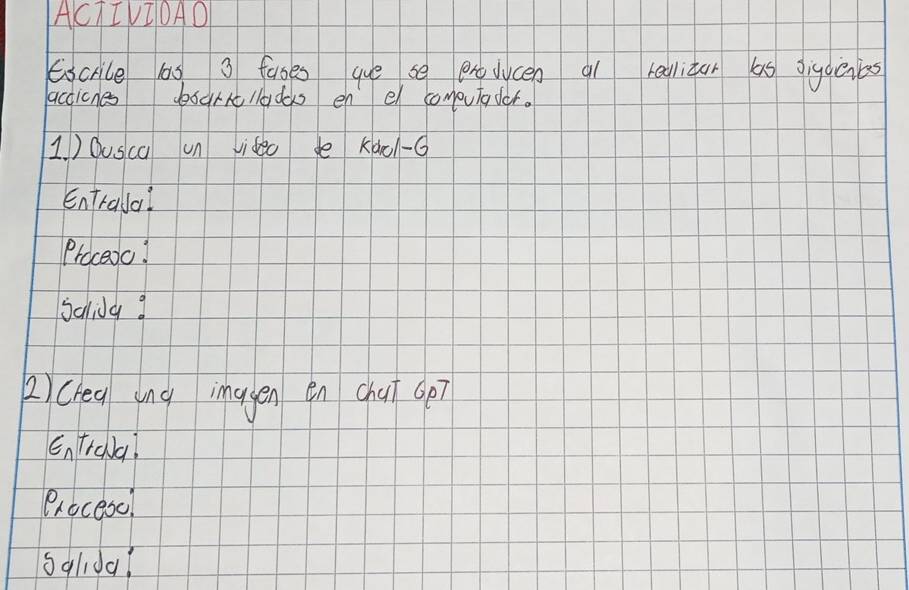 ACTIVIDAD
Escribe las 3 fases que se producen al realizar las siguientes
acciones desarrolladas en el computador.
1.) Busca un video de Karol-G
Entrada:
Proceso:
Salida:
2) Crea una imagen en chat GPT
Entrada:
Proceso:
Salida: